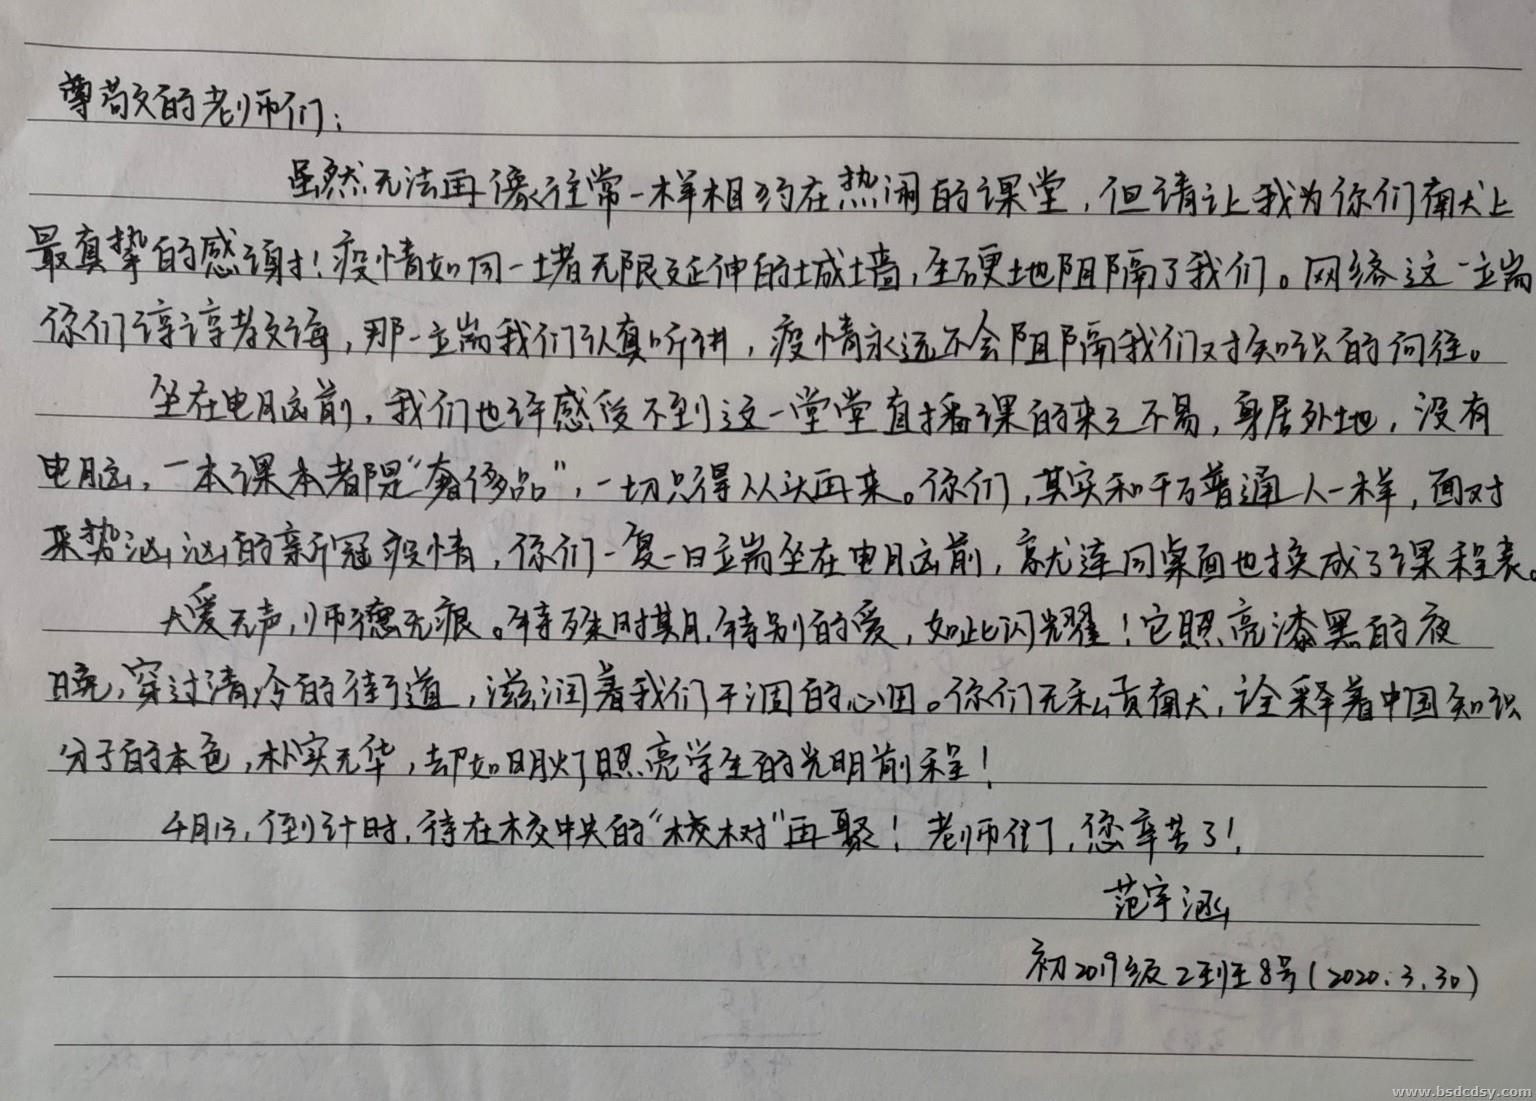 尊敬的老师们：
虽然无法再像往常一样相约在热闹的课堂，但请让我为你们献上
最真挚的感谢！疫情如同一堵无限延伸的城墙，生硬地阻隔了我们。网络这一端
你们谆谆教诲，那一端我们认真听讲，疫情永远不会阻隔我们对知识的向往。
坐在电脑前，我们也许感受不到这一堂堂直播课的来之不易，身居外地，没有
电脑，一本课本都是“奢侈品”，一切只得从头再来。你们，其实和千万普通人一样，面对
来势汹汹的新冠疫情，你们一复一日端坐在电脑前，就连同桌面也换成了课程表。
大爱无声，师德无痕。特殊时期，特别的爱，如此闪耀！它照亮漆黑的夜
晚，穿过清冷的街道，滋润着我们干涸的心田。你们无私贡献，诠释着中国知识
分子的本色，朴实无华，却如明灯照亮学生的光明前程！
4月13，倒计时，待在校中央的“校树”再聚！老师们，您辛苦了！
范宇涵
初2019级2到至8号（2020.3.30）
www.bsdcdsy.com